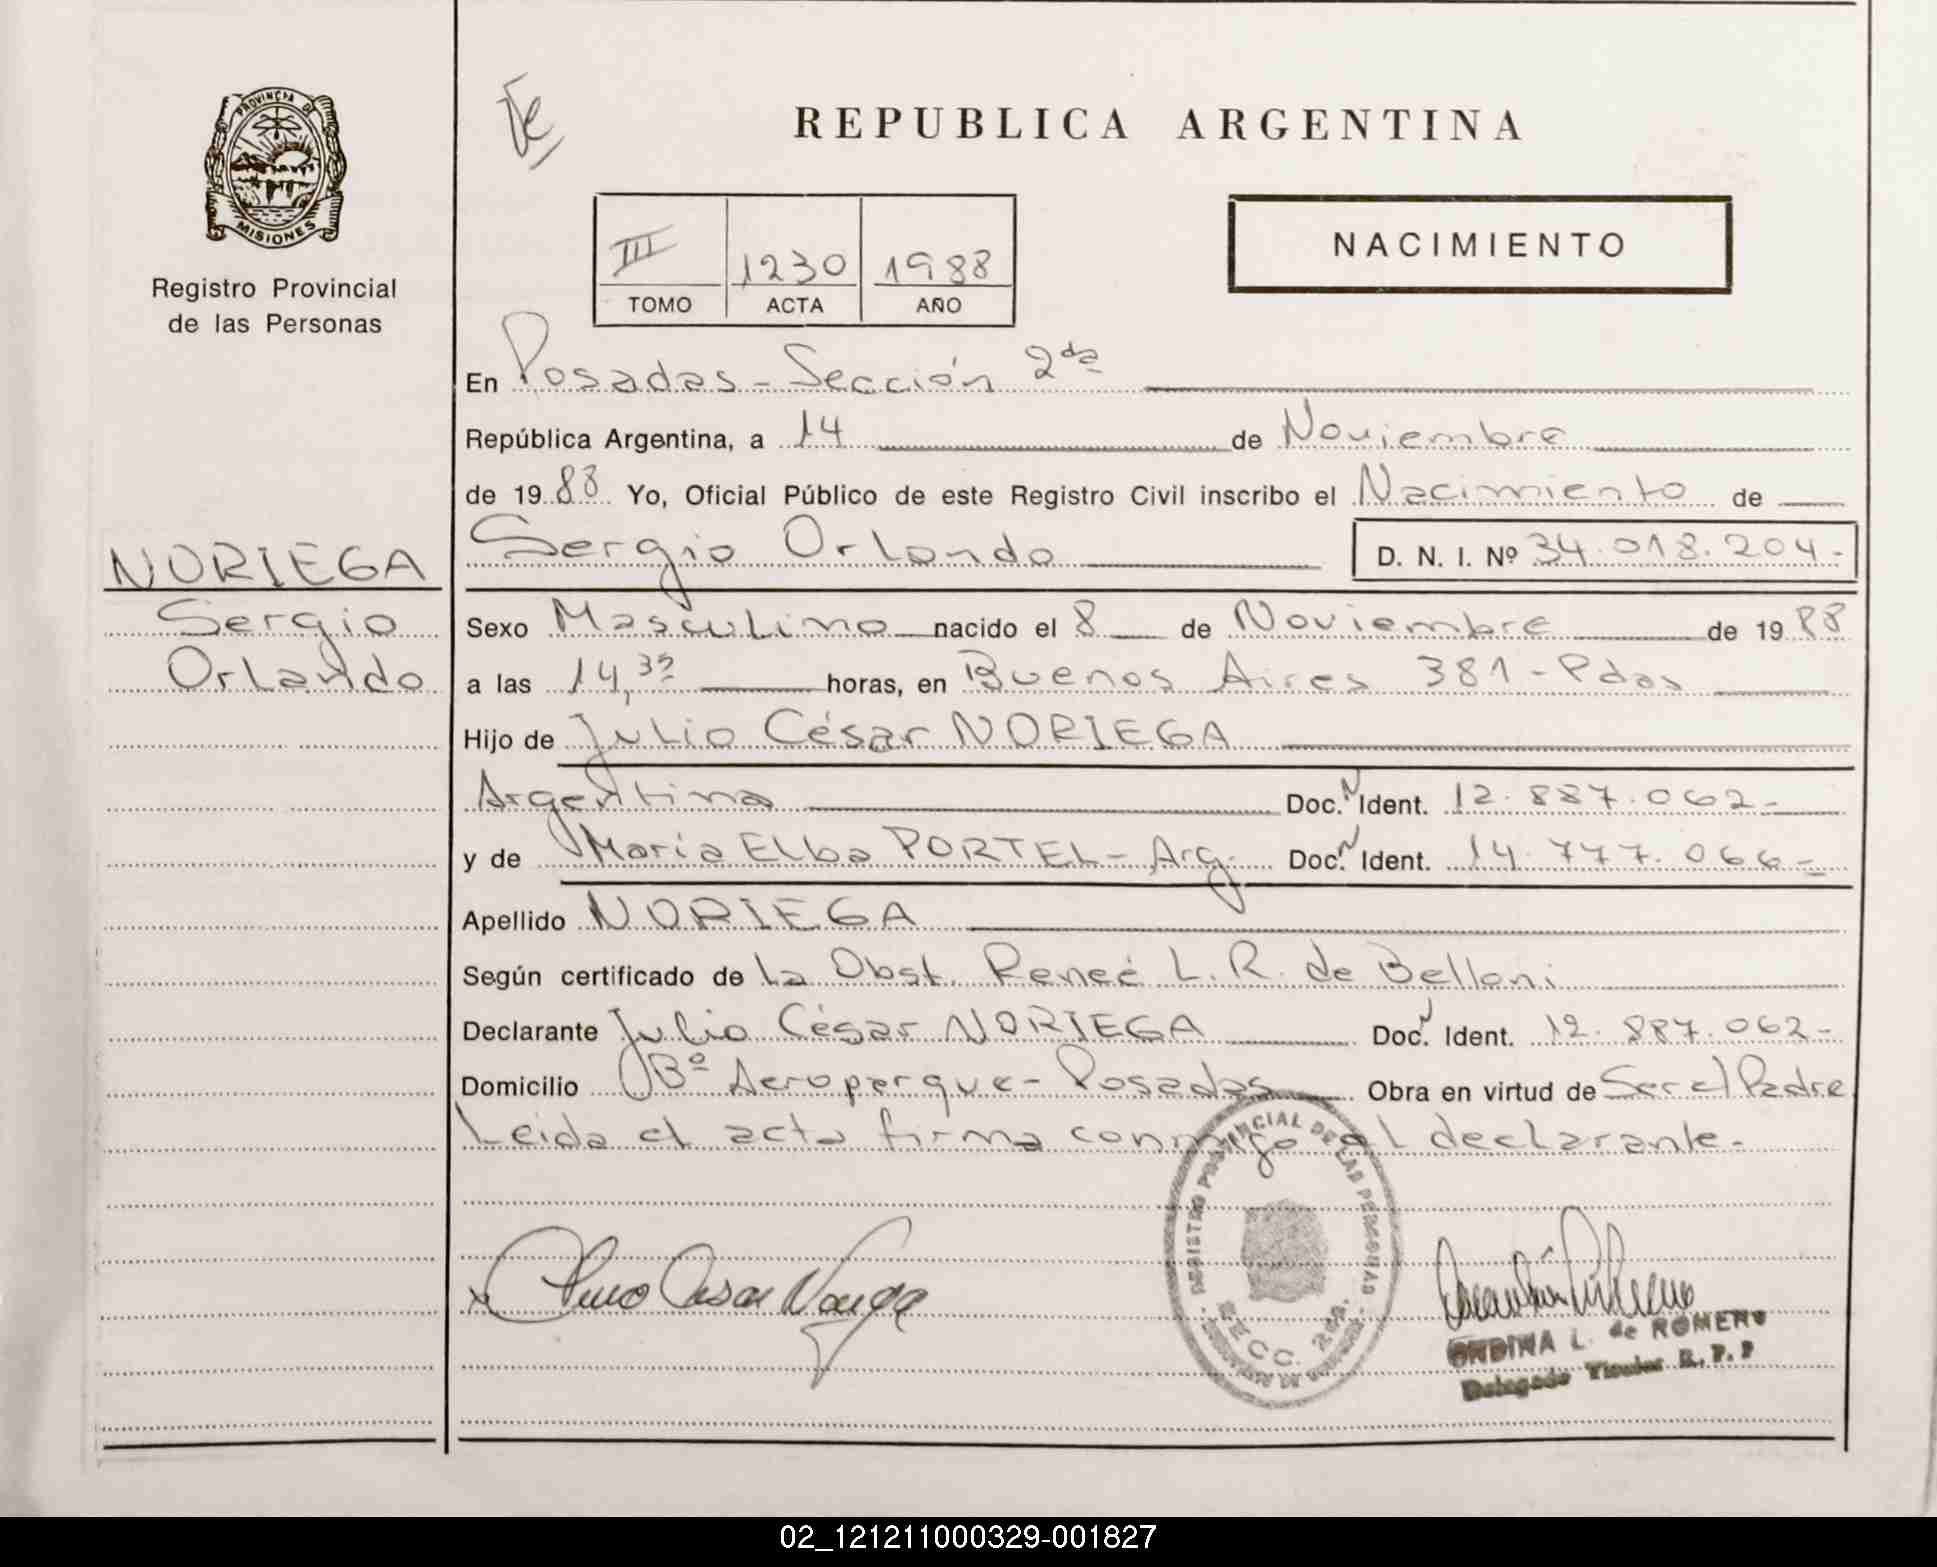 PROVINCIA DE
MISIONES
Registro Provincial
de las Personas
NORIEGA
Sergio
Orlando
REPUBLICA ARGENTINA
III 1230 1988
TOMO ACTA AÑO
NACIMIENTO
En Posadas - Sección 2da
República Argentina, a 14 de Noviembre
de 1988 Yo, Oficial Público de este Registro Civil inscribo el Nacimiento de
Sergio Orlando D. N. I. Nº 34.018.204.-
Sexo Masculino nacido el 8 de Noviembre de 1988
a las 14,30 horas, en Buenos Aires 381 - Pdas
Hijo de Julio César NORIEGA
Argentina Doc. N Ident. 12.887.062-
y de María Elba PORTEL - Arg. Doc. N Ident. 14.777.066-
Apellido NORIEGA
Según certificado de La Obst. Reneé L. R. de Belloni
Declarante Julio César NORIEGA Doc. N Ident. 12.887.062-
Domicilio Bº Aeroparque - Posadas Obra en virtud de Ser el Padre
Leida el acta firma conmigo el declarante.
REGISTRO PROVINCIAL DE LAS PERSONAS
SECC. 2da.
ONDINA L. de ROMERO
Delegado Titular R. P. P
02_121211000329-001827